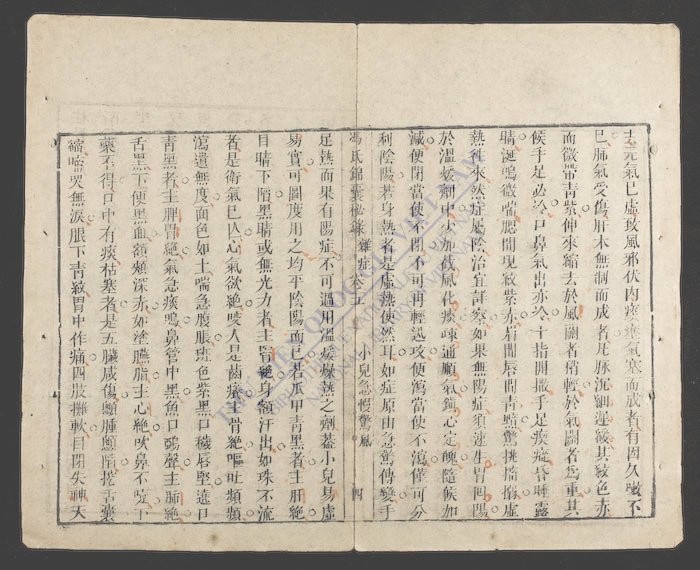 土元氣已虛致風邪伏內痰壅氣塞而成者有因久嗽不
已肺氣受傷肝木無制而成者其脉沉細遲緩其紋色亦
而微帶青紫伸來縮去於風關者稍輕於氣關者爲重其
候手足必冷口鼻氣出亦冷十指開撒手足瘈瘲昏睡露
睛涎鳴微喘腮間現紋紫赤眉間唇間青黯驚挑搐搦虛
熱往來然症屬陰治宜詳察如果無陽症須速生胃回陽
於溫媛劑中少加截風化痰疎通順氣鎮心定魄隨候加
減使閉當使不閉不可再輕迅攻使瀉當使不瀉僅可分
利陰陽若身熱者是虛熱使然耳如症原由急驚傳變手
馮氏錦囊秘錄 雜症卷五 小兒急慢驚風 四
足熱而果有陽症不可過用溫媛燥熱之劑葢小兒易虛
易實可圖度用之均平陰陽而已若爪甲青黑者主肝絕
目睛下陷黑睛或無光力者主腎絕身額汗出如珠不流
者是衛氣已亡心氣欲絕咬人是齒癢主骨絕嘔吐頻頻
瀉遺無度面色如土喘急腹脹斑色紫黑口穢唇堅遺口
青黑者主脾胃絕氣急痰鳴鼻管中黑魚口鴉聲主肺絕
舌黑下便黑血額頰深赤如塗臙脂主心絕吹鼻不嚏下
藥不得口中有痰枯塞者是五臟咸傷顖腫顖陷搖舌囊
縮啼哭無淚眼下青紋胃中作痛四肢攤軟目閉失神大